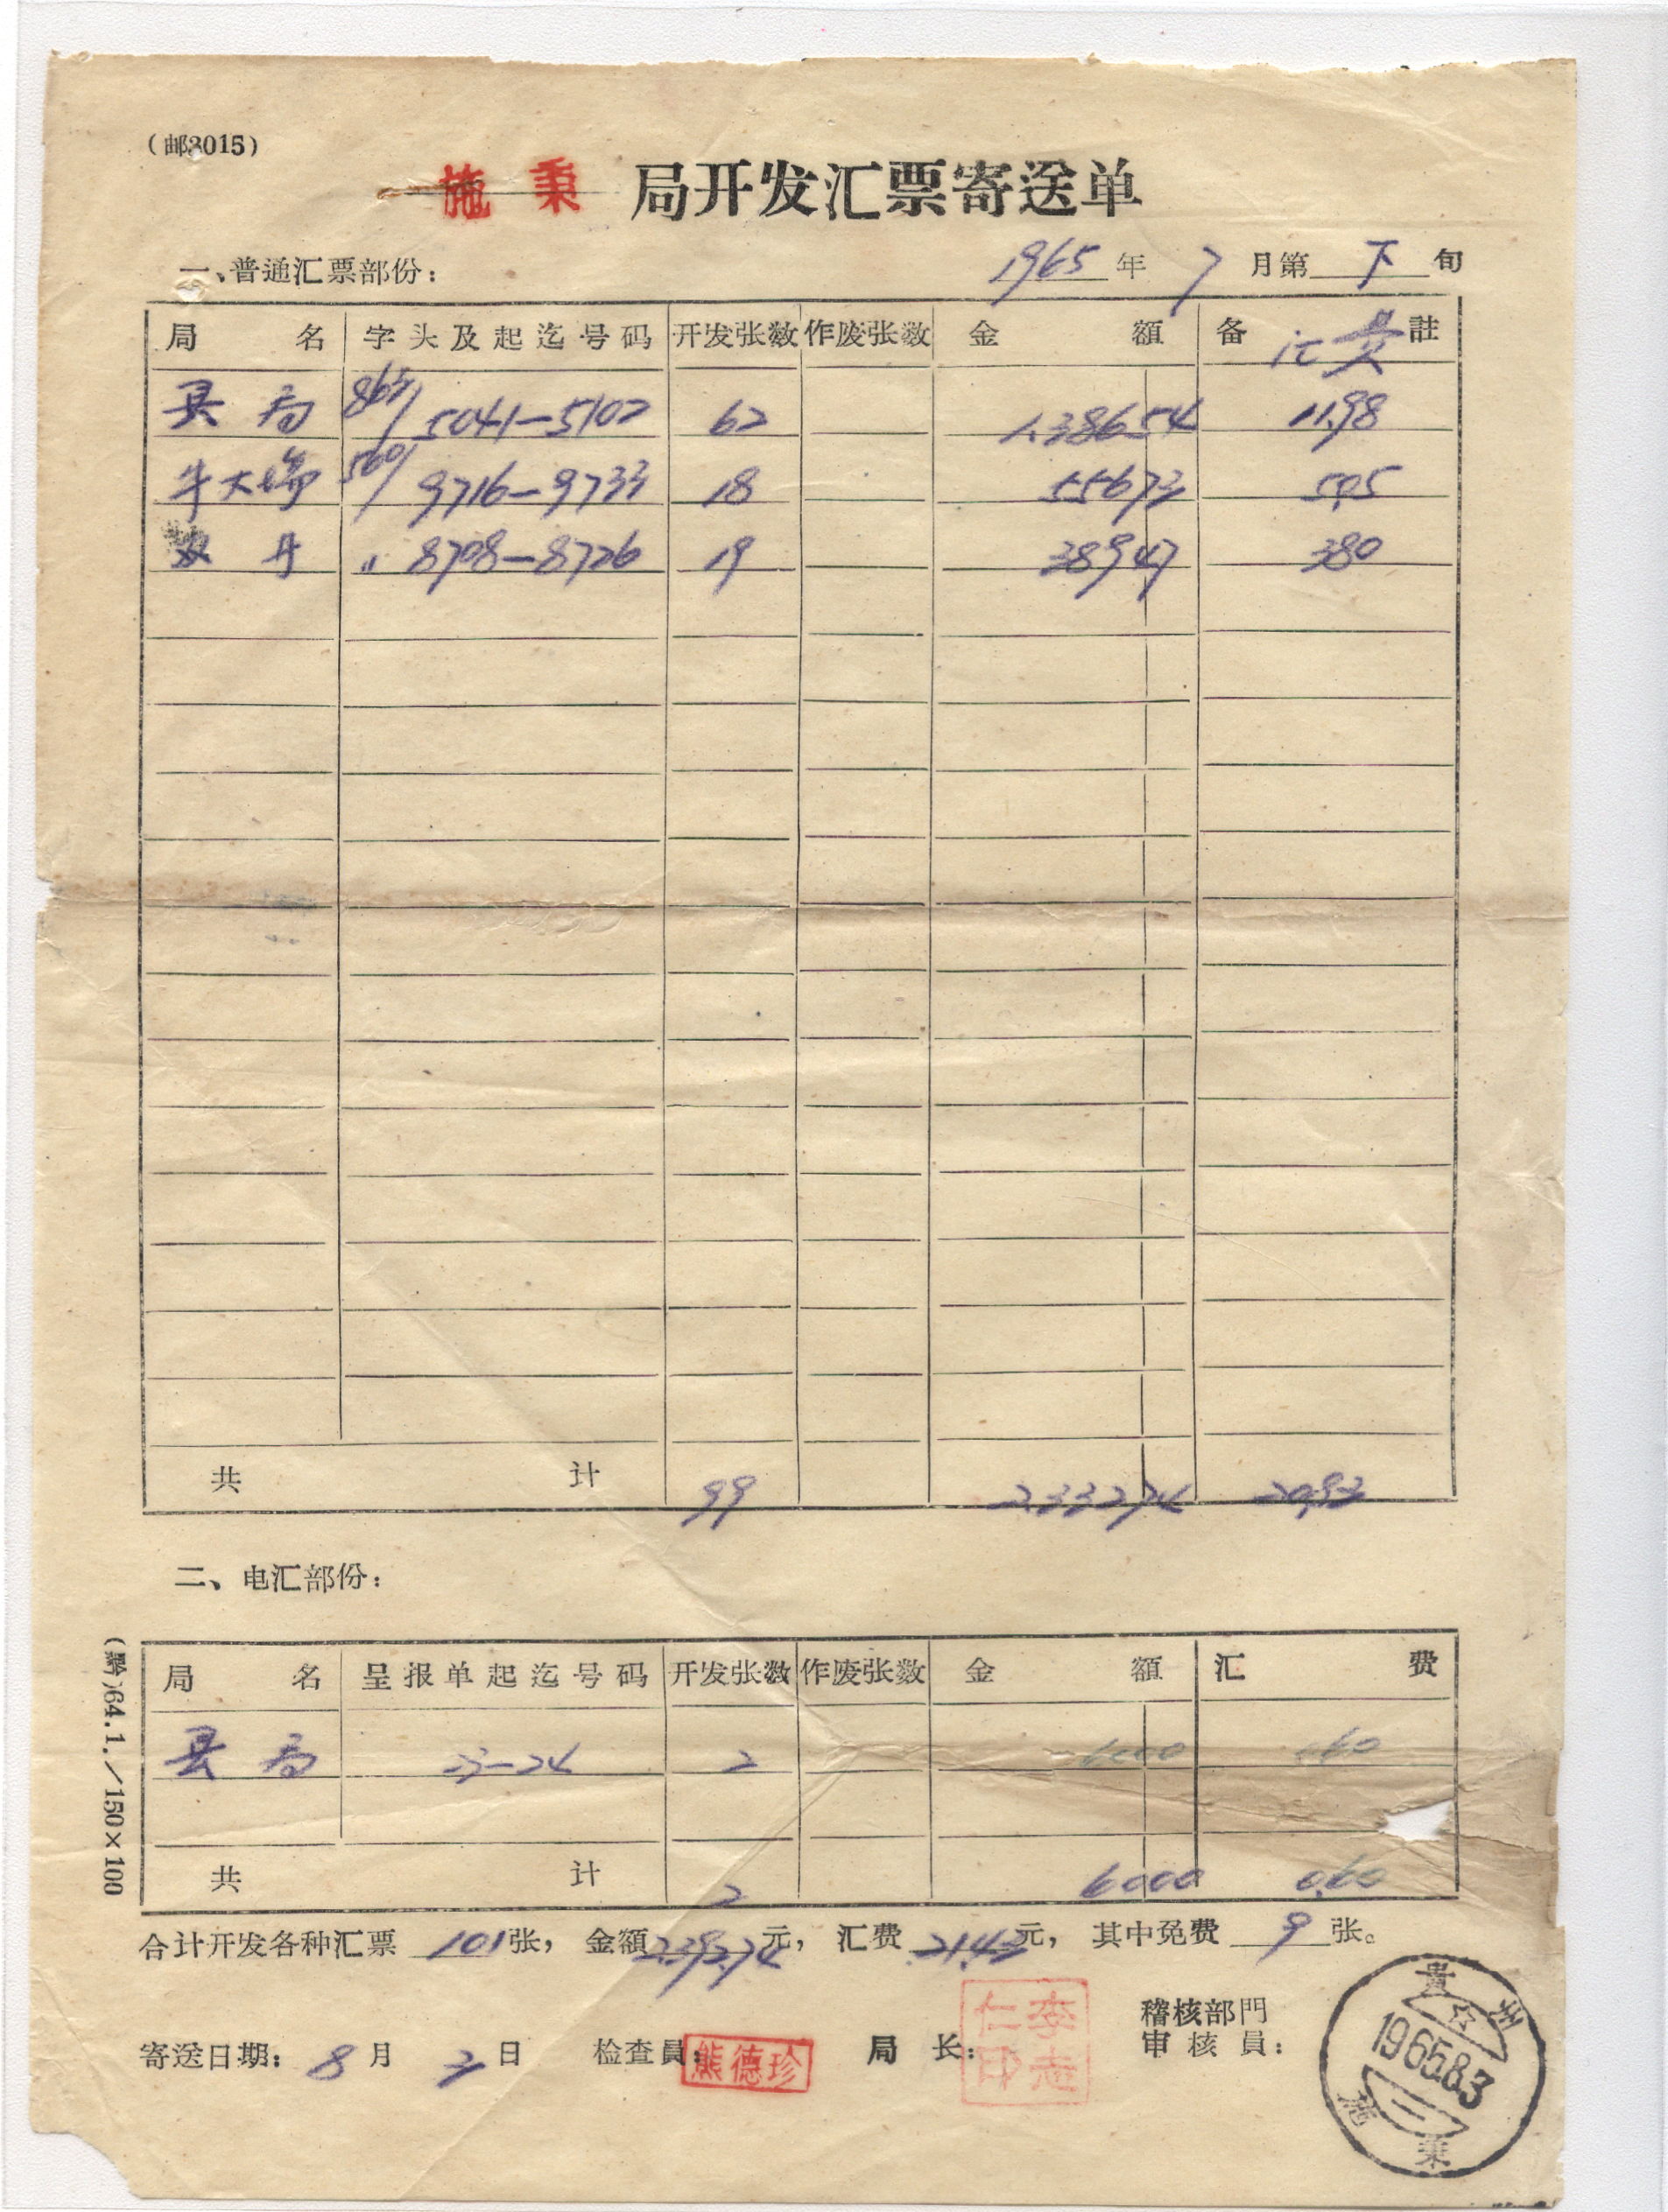 (邮3015)
施秉 局开发汇票寄送单
一、普通汇票部份: 1965年7月第下旬
局名 字头及起迄号码 开发张数 作废张数 金额 备註 汇费
县局 863/ 5041—5102 62 1,386.54 11.98
牛大场 560/ 9716—9733 18 556.73 5.05
双井 〃 8708—8726 19 389.47 3.80
共计 99 2,332.74 20.83
二、电汇部份:
局名 呈报单起迄号码 开发张数 作废张数 金额 汇费
县局 23—24 2 60.00 .60
共计 2 60.00 0.60
合计开发各种汇票101张, 金额2,392.74元, 汇费21.43元, 其中免费9张。
寄送日期: 8月3日 检查員: 熊德珍 局长: 李志仁印 稽核部門
审核員:
贵州
1965.8.3
施秉
(黔)64.1./150×100